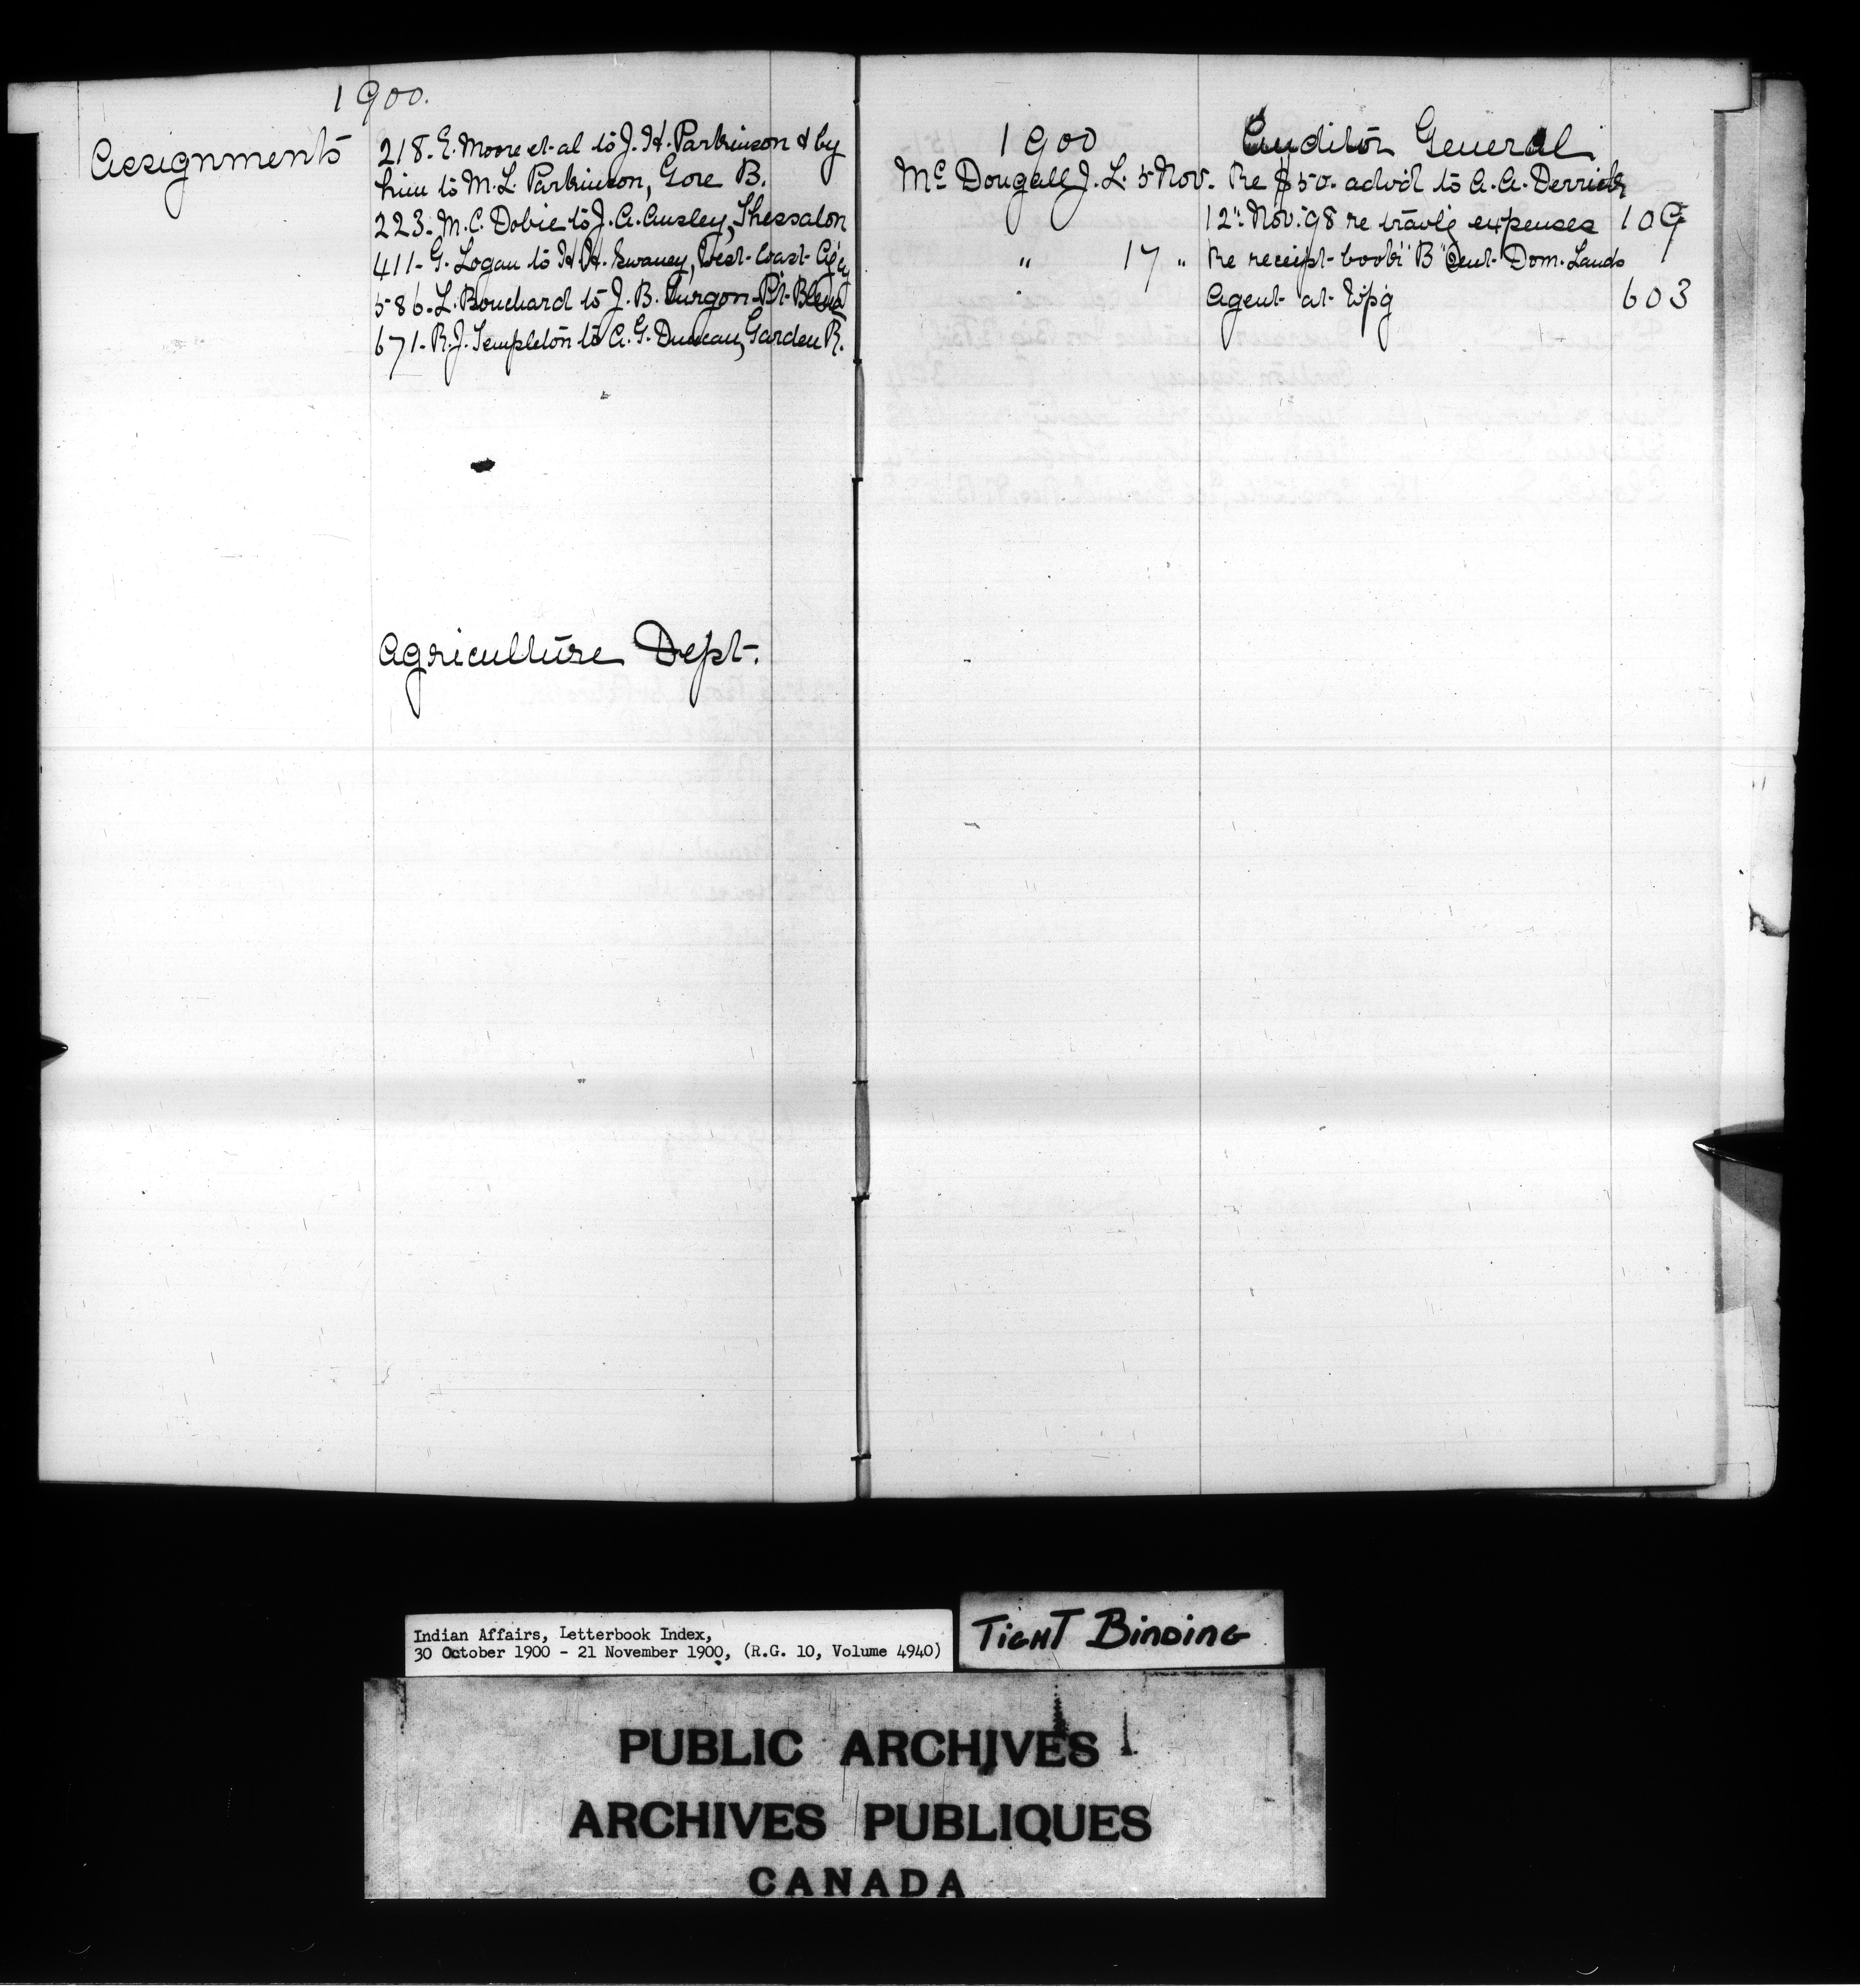 1900.
Assignments
218. E. Moore et al to J. H. Parkinson & by
him to M. L. Parkinson, Gore B.
223. M. C. Dobie to J. A. Ansley, Thessalon
411- G. Logan to H. H. Swaney, West Coast Ag'cy
586. L. Bouchard to J. B. Turgon Pt. Bleue
671- R. J. Templeton to A. G. Duncan, Garden R.
Agriculture Dept.
1900 Auditor General
McDougall J. L. 5 Nov. Re $50. adv'd to A. A. Derrick
12" Nov. '98 re trav'l'g expenses 109
" 17 " Re receipt book "B" Dom. Lands
Agent at Wp'g 603
Indian Affairs, Letterbook Index,
30 October 1900 - 21 November 1900, (R.G. 10, Volume 4940)
TIGHT BINDING
PUBLIC ARCHIVES
ARCHIVES PUBLIQUES
CANADA